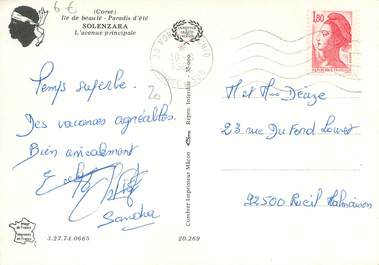 6€
(Corse)
Ile de beauté - Paradis d'été
SOLENZARA
L'avenue principale
Temps superbe.
Des vacances agréables.
Bien amicalement
Sandra
20
3.27.74.0665
20.269
Combier Imprimeur Mâcon
Repro. Interdite
1,80
REPUBLIQUE FRANCAISE
M et Mme
23 rue Du Fond Louvet
92500 Rueil Malmaison